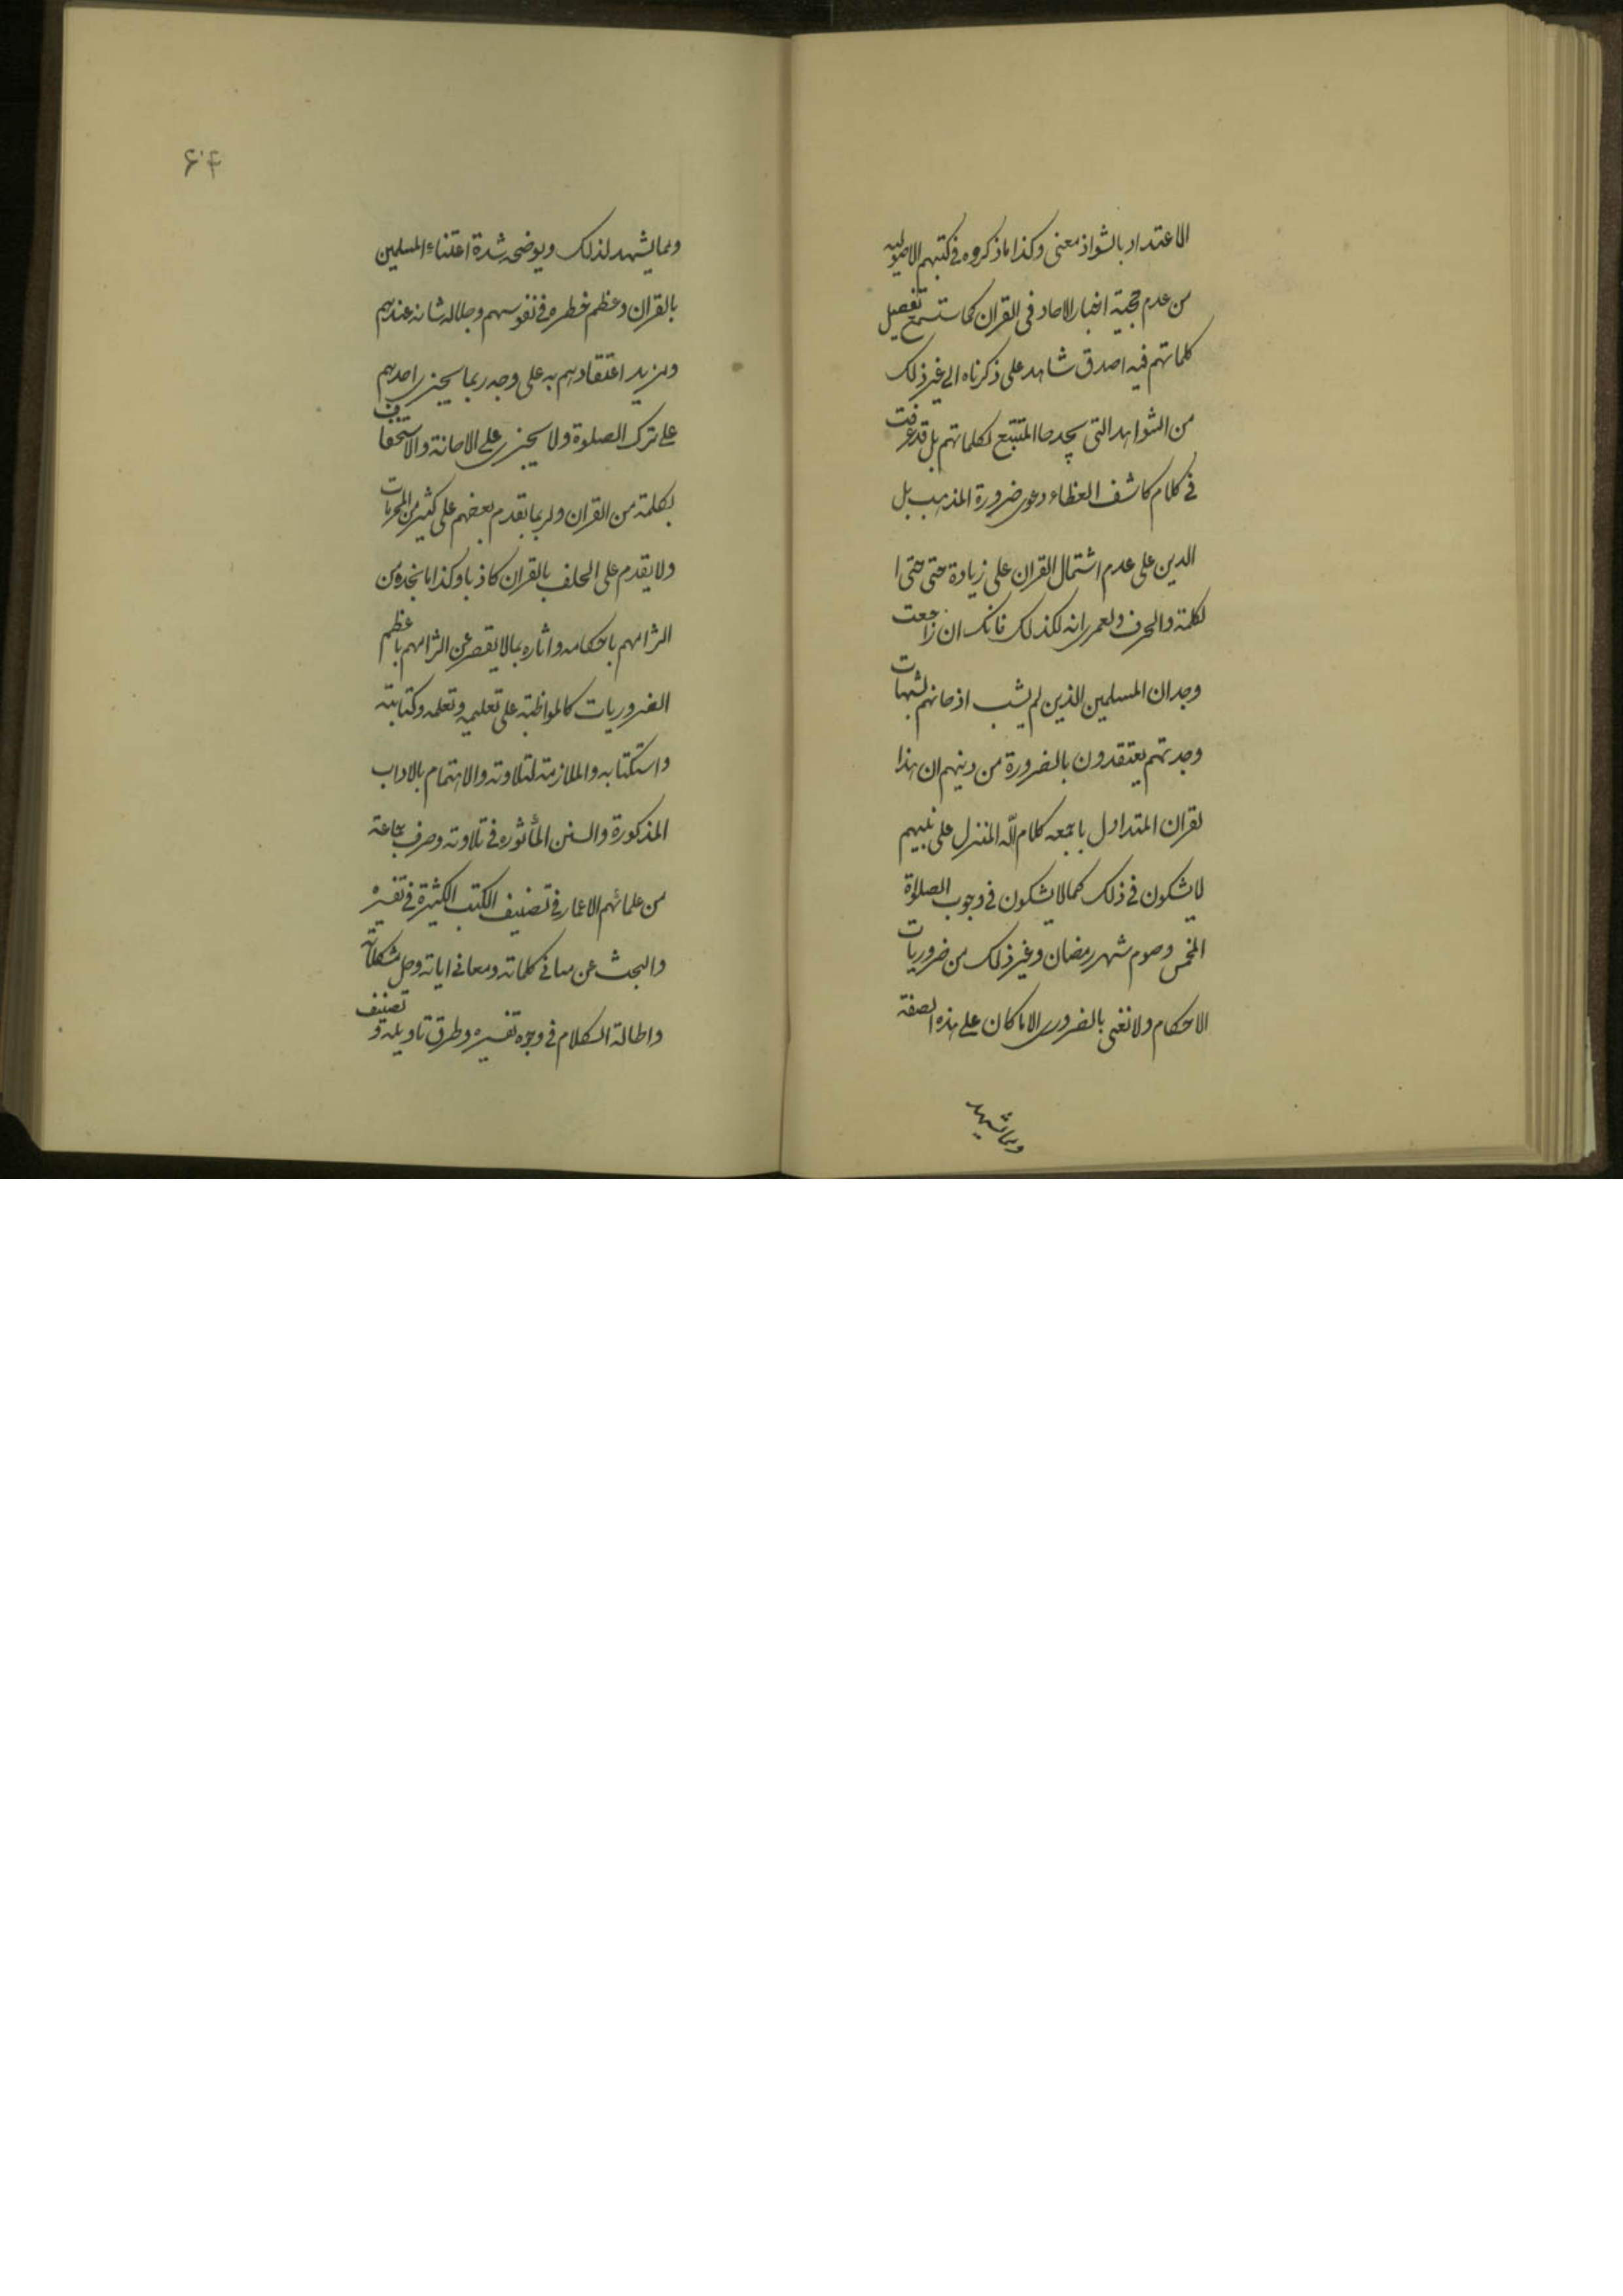 الاعتداد بالشواذ معنى وكذا ما ذكروه في كتبهم الاصولية
من عدم حجية اخبار الاحاد في القران كما ستسمع تفصيل
كلماتهم فيه اصدق شاهد على ذكرناه الى غير ذلك
من الشواهد التي يجدها المتتبع لكلماتهم بل قد عرفت
في كلام كاشف الغطاء دعوى ضرورة المذهب بل
الدين على عدم اشتمال القران على زيادة حتى حتى ا
لكلمة والحرف ولعمرى انه لكذلك فانك ان راجعت
وجدان المسلمين الذين لم يشب اذهانهم بشبهات
وجدتهم يعتقدون بالضرورة من دينهم ان هذا
لقران المتداول باجمعه كلام الله المنزل على نبيهم
لا يشكون في ذلك كما لا يشكون في وجوب الصلوة
الخمس وصوم شهر رمضان وغير ذلك من ضروريات
الاحكام ولا نعنى بالضرورى الا ما كان على هذه الصفة
ومما يشهد
۶۰۴
ومما يشهد لذلك ويوضحه شدة اعتناء المسلمين
بالقران وعظم خطره في نفوسهم وجلالة شانه عندهم
ومزيد اعتقادهم به على وجه ربما يجترى احدهم
على ترك الصلوة ولا يجترى على الاهانة والاستخفاف
بكلمة من القران ولربما يقدم بعضهم على كثير من المحرمات
ولا يقدم على الحلف بالقران كاذبا وكذا ما نجده من
التزامهم باحكامه واثاره بما لا يقصر عن التزامهم باعظم
الضروريات كالمواظبة على تعليمه وتعلمه وكتابته
واستكتابه والملازمة لتلاوته والاهتمام بالاداب
المذكورة والسنن المأثوره في تلاوته وصرف جماعة
من علمائهم الاعمار في تصنيف الكتب الكثيرة في تفسيره
والبحث عن مبانى كلماته ومعانى اياته وحل مشكلاته
واطالة الكلام في وجوه تفسيره وطرق تاويله و تصنيف